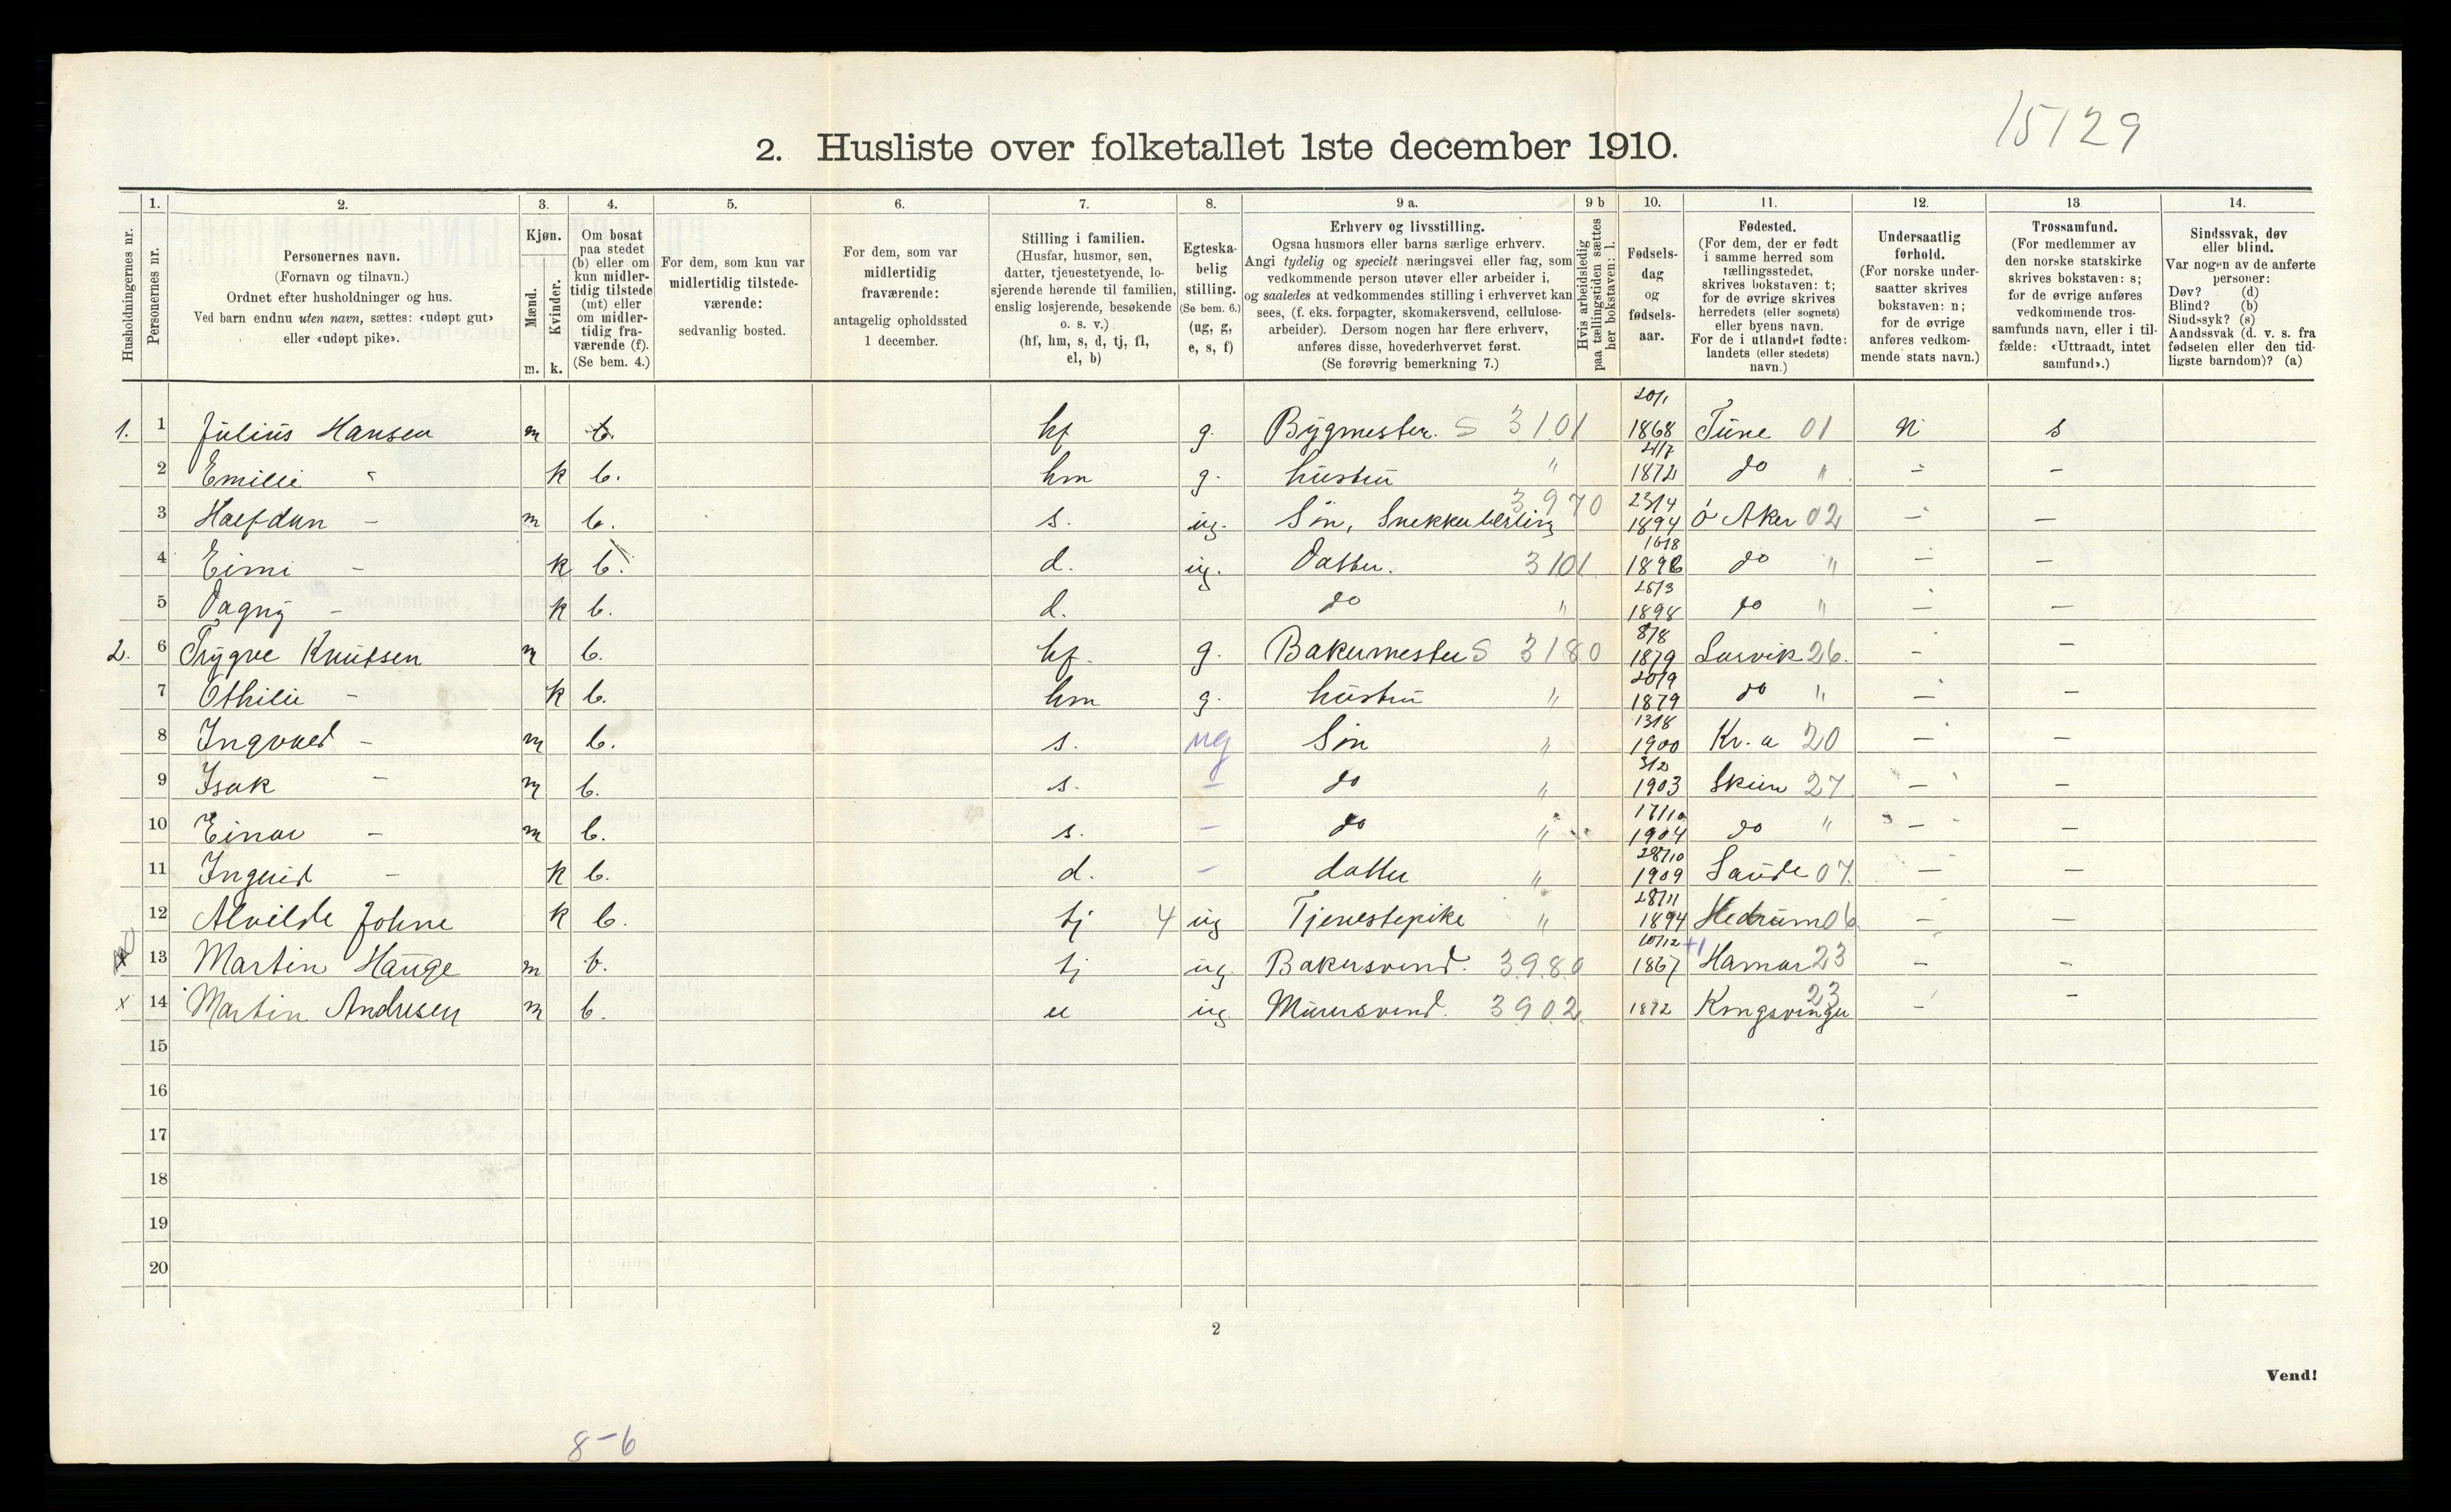 15129
2. Husliste over folketallet 1ste december 1910.
Husholdningernes nr.
1. Personernes nr.
2. Personernes navn. (Fornavn og tilnavn.) Ordnet efter husholdninger og hus. Ved barn endnu uten navn, sættes: «udøpt gut» eller «udøpt pike».
3. Kjøn. Mænd. m. Kvinder. k.
4. Om bosat paa stedet (b) eller om kun midlertidig tilstede (mt) eller om midlertidig fraværende (f). (Se bem. 4.)
5. For dem, som kun var midlertidig tilstedeværende: sedvanlig bosted.
6. For dem, som var midlertidig fraværende: antagelig opholdssted 1 december.
7. Stilling i familien. (Husfar, husmor, søn, datter, tjenestetyende, losjerende hørende til familien, enslig losjerende, besøkende o. s. v.) (hf, hm, s, d, tj, fl, el, b)
8. Egteskabelig stilling. (Se bem. 6.) (ug, g, e, s, f)
9 a. Erhverv og livsstilling. Ogsaa husmors eller barns særlige erhverv. Angi tydelig og specielt næringsvei eller fag, som vedkommende person utøver eller arbeider i, og saaledes at vedkommendes stilling i erhvervet kan sees, (f. eks. forpagter, skomakersvend, cellulosearbeider). Dersom nogen har flere erhverv, anføres disse, hovederhvervet først. (Se forøvrig bemerkning 7.)
9 b Hvis arbeidsledig paa tællingstiden sættes her bokstaven: l.
10. Fødselsdag og fødselsaar.
11. Fødested. (For dem, der er født i samme herred som tællingsstedet, skrives bokstaven: t; for de øvrige skrives herredets (eller sognets) eller byens navn. For de i utlandet fødte: landets (eller stedets) navn.)
12. Undersaatlig forhold. (For norske undersaatter skrives bokstaven: n; for de øvrige anføres vedkommende stats navn.)
13 Trossamfund. (For medlemmer av den norske statskirke skrives bokstaven: s; for de øvrige anføres vedkommende trossamfunds navn, eller i tilfælde: «Uttraadt, intet samfund».)
14. Sindssvak, døv eller blind. Var nogen av de anførte personer: Døv? (d) Blind? (b) Sindssyk? (s) Aandssvak (d. v. s. fra fødselen eller den tidligste barndom)? (a)
1. 1 Julius Hansen m b. hf g. Bygmester. S 3101 20/1 1868 Tune 01 n s
2 Emilie " k b. hm g. hustru " 21/7 1872 do " - -
3 Halfdan - m b. s. ug. Søn, Snekkerlærling 3970 23/4 1894 ø Aker 02 - -
4 Eimi - k b. d. ug. Datter. 3101 16/8 1896 do " - -
5 Dagny - k b. d. do " 25/3 1898 do " - -
2. 6 Trygve Knutsen m b. hf. g. Bakermester S 3180 8/8 1879 Larvik 26. - -
7 Othilie - k b. hm g. hustru " 20/9 1879 do " - -
8 Ingvald - m b. s. ug Søn " 13/8 1900 Kr.a 20 - -
9 Isak - m b. s. - do " 3/2 1903 Skien 27 - -
10 Einar - m b. s. - do " 17/10 1904 do " - -
11 Ingrid - k b. d. - datter " 28/10 1909 Saude 07. - -
12 Alvilde Johne k b. tj 4 ug Tjenestepike " 28/11 1894 Hedrum 06 - -
x 13 Martin Hauge m b. tj ug. Bakersvend. 3980 10/12 1867 +1 Hamar 23 - -
x 14 Martin Andresen m b. el ug. Murersvend. 3902 1872 Kongsvinger 23 - -
15
16
17
18
19
20
2
Vend!
8-6